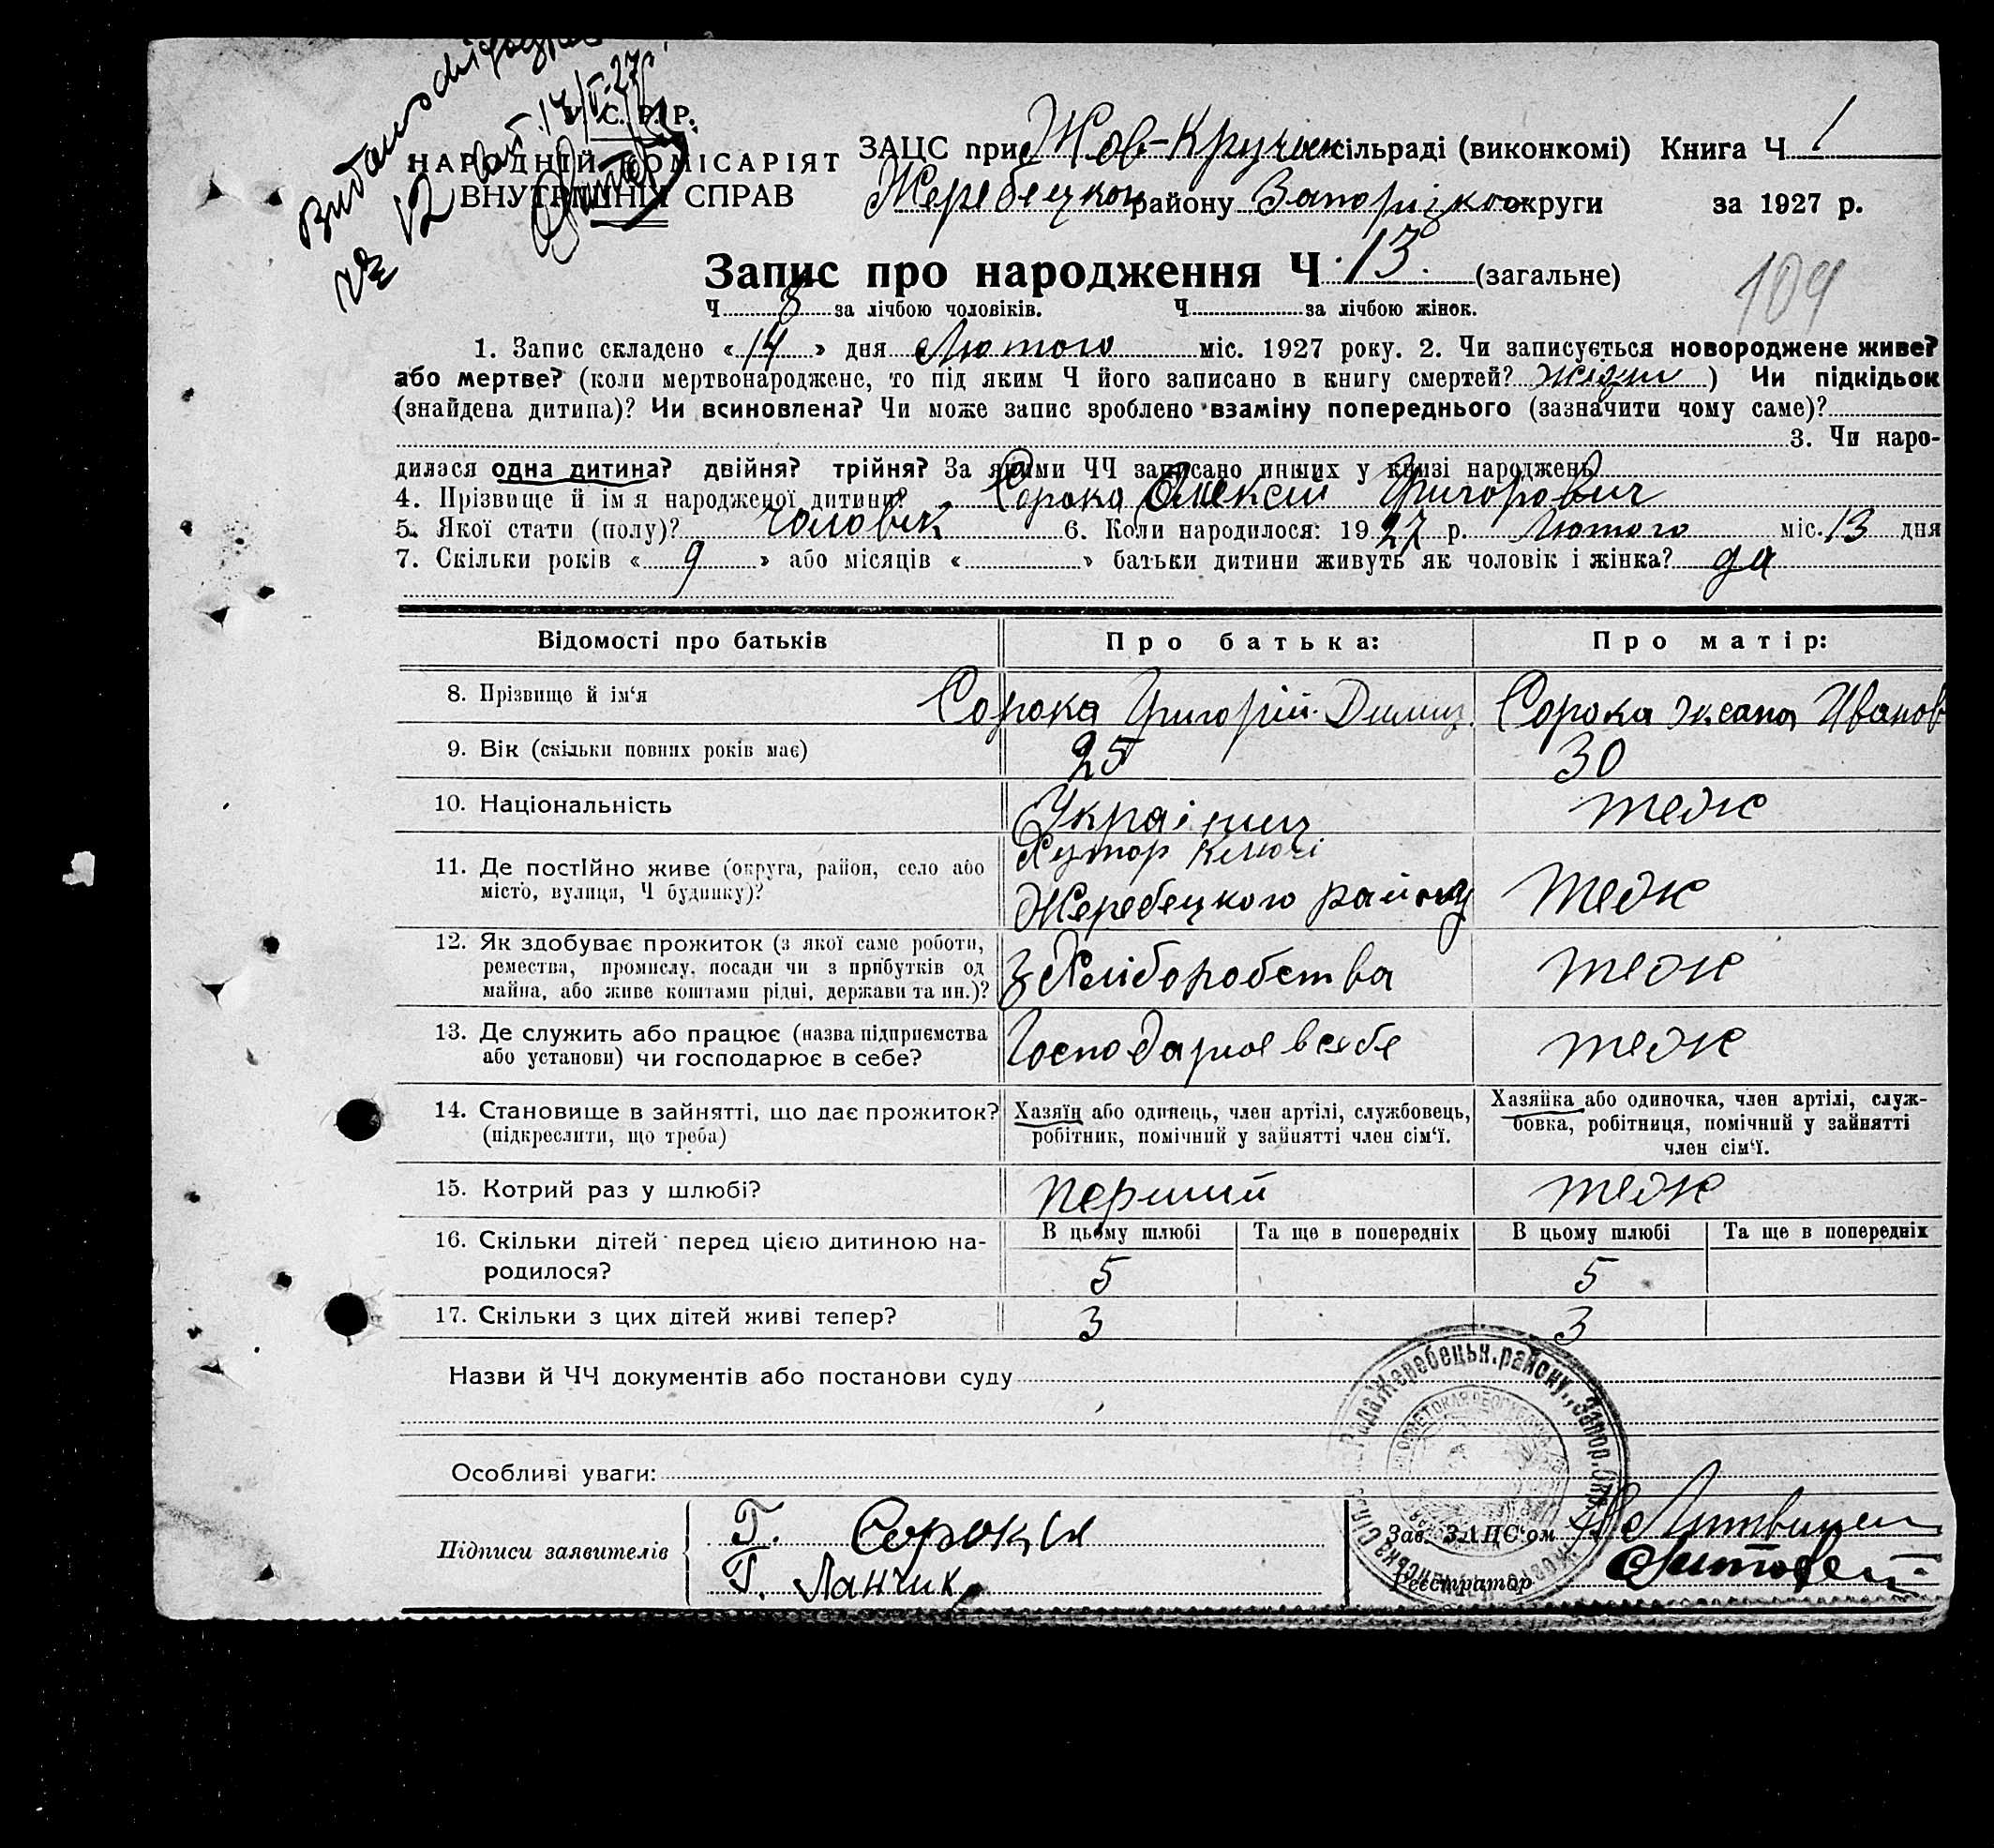 Видано
№ 12
У. С. Р. Р.
НАРОДНІЙ КОМІСАРІЯТ
ВНУТРІШНІХ СПРАВ
ЗАЦС при Жов-Кручан сільраді (виконкомі) Книга Ч 1
Жеребецького району Запорізької округи за 1927 р.
Запис про народження Ч. 13. (загальне)
109
Ч 8 за лічбою чоловіків. Ч за лічбою жінок.
1. Запис складено «14» дня Лютого міс. 1927 року. 2. Чи записується новороджене живе?
або мертве? (коли мертвонароджене, то під яким Ч його записано в книгу смертей? ) Чи підкідьок
(знайдена дитина)? Чи всиновлена? Чи може запис зроблено взаміну попереднього (зазначити чому саме)?
3. Чи наро-
дилася одна дитина? двійня? трійня? За якими ЧЧ записано инших у книзі народжень
4. Прізвище й ім я народженої дитини? Сорока Олексій Григорович
5. Якої стати (полу)? чоловік 6. Коли народилося: 1927 р. Лютого міс. 13 дня
7. Скільки років « 9 » або місяців « » батьки дитини живуть як чоловік і жінка? да
Відомості про батьків Про батька: Про матір:
8. Прізвище й ім'я Сорока Григорій Сорока Иванов
9. Вік (скільки повних років має) 25 30
10. Національність Українец теж
11. Де постійно живе (округа, район, село або
місто, вулиця, Ч будинку)? Хутор Ключі
Жеребецкого району теж
12. Як здобуває прожиток (з якої саме роботи,
ремества, промислу, посади чи з прибутків од
майна, або живе коштами рідні, держави та ин.)? З Хліборобства теж
13. Де служить або працює (назва підприємства
або установи) чи господарює в себе? Господарює в себе теж
14. Становище в зайнятті, що дає прожиток?
(підкреслити, що треба)
Хазяїн або одинець, член артілі, службовець,
робітник, помічний у зайнятті член сім'ї.
Хазяйка або одиночка, член артілі, служ-
бовка, робітниця, помічний у зайнятті
член сім'ї.
15. Котрий раз у шлюбі? перший теж
В цьому шлюбі Та ще в попередніх В цьому шлюбі Та ще в попередніх
16. Скільки дітей перед цією дитиною на-
родилося? 5 5
17. Скільки з цих дітей живі тепер? 3 3
Назви й ЧЧ документів або постанови суду
Особливі уваги:
Рада Жеребецьк. району, Запор. Окр.
Підписи заявителів
Г. Сорока
Г. Ланчик
Зав. ЗАЦС'ом
Реєстратор